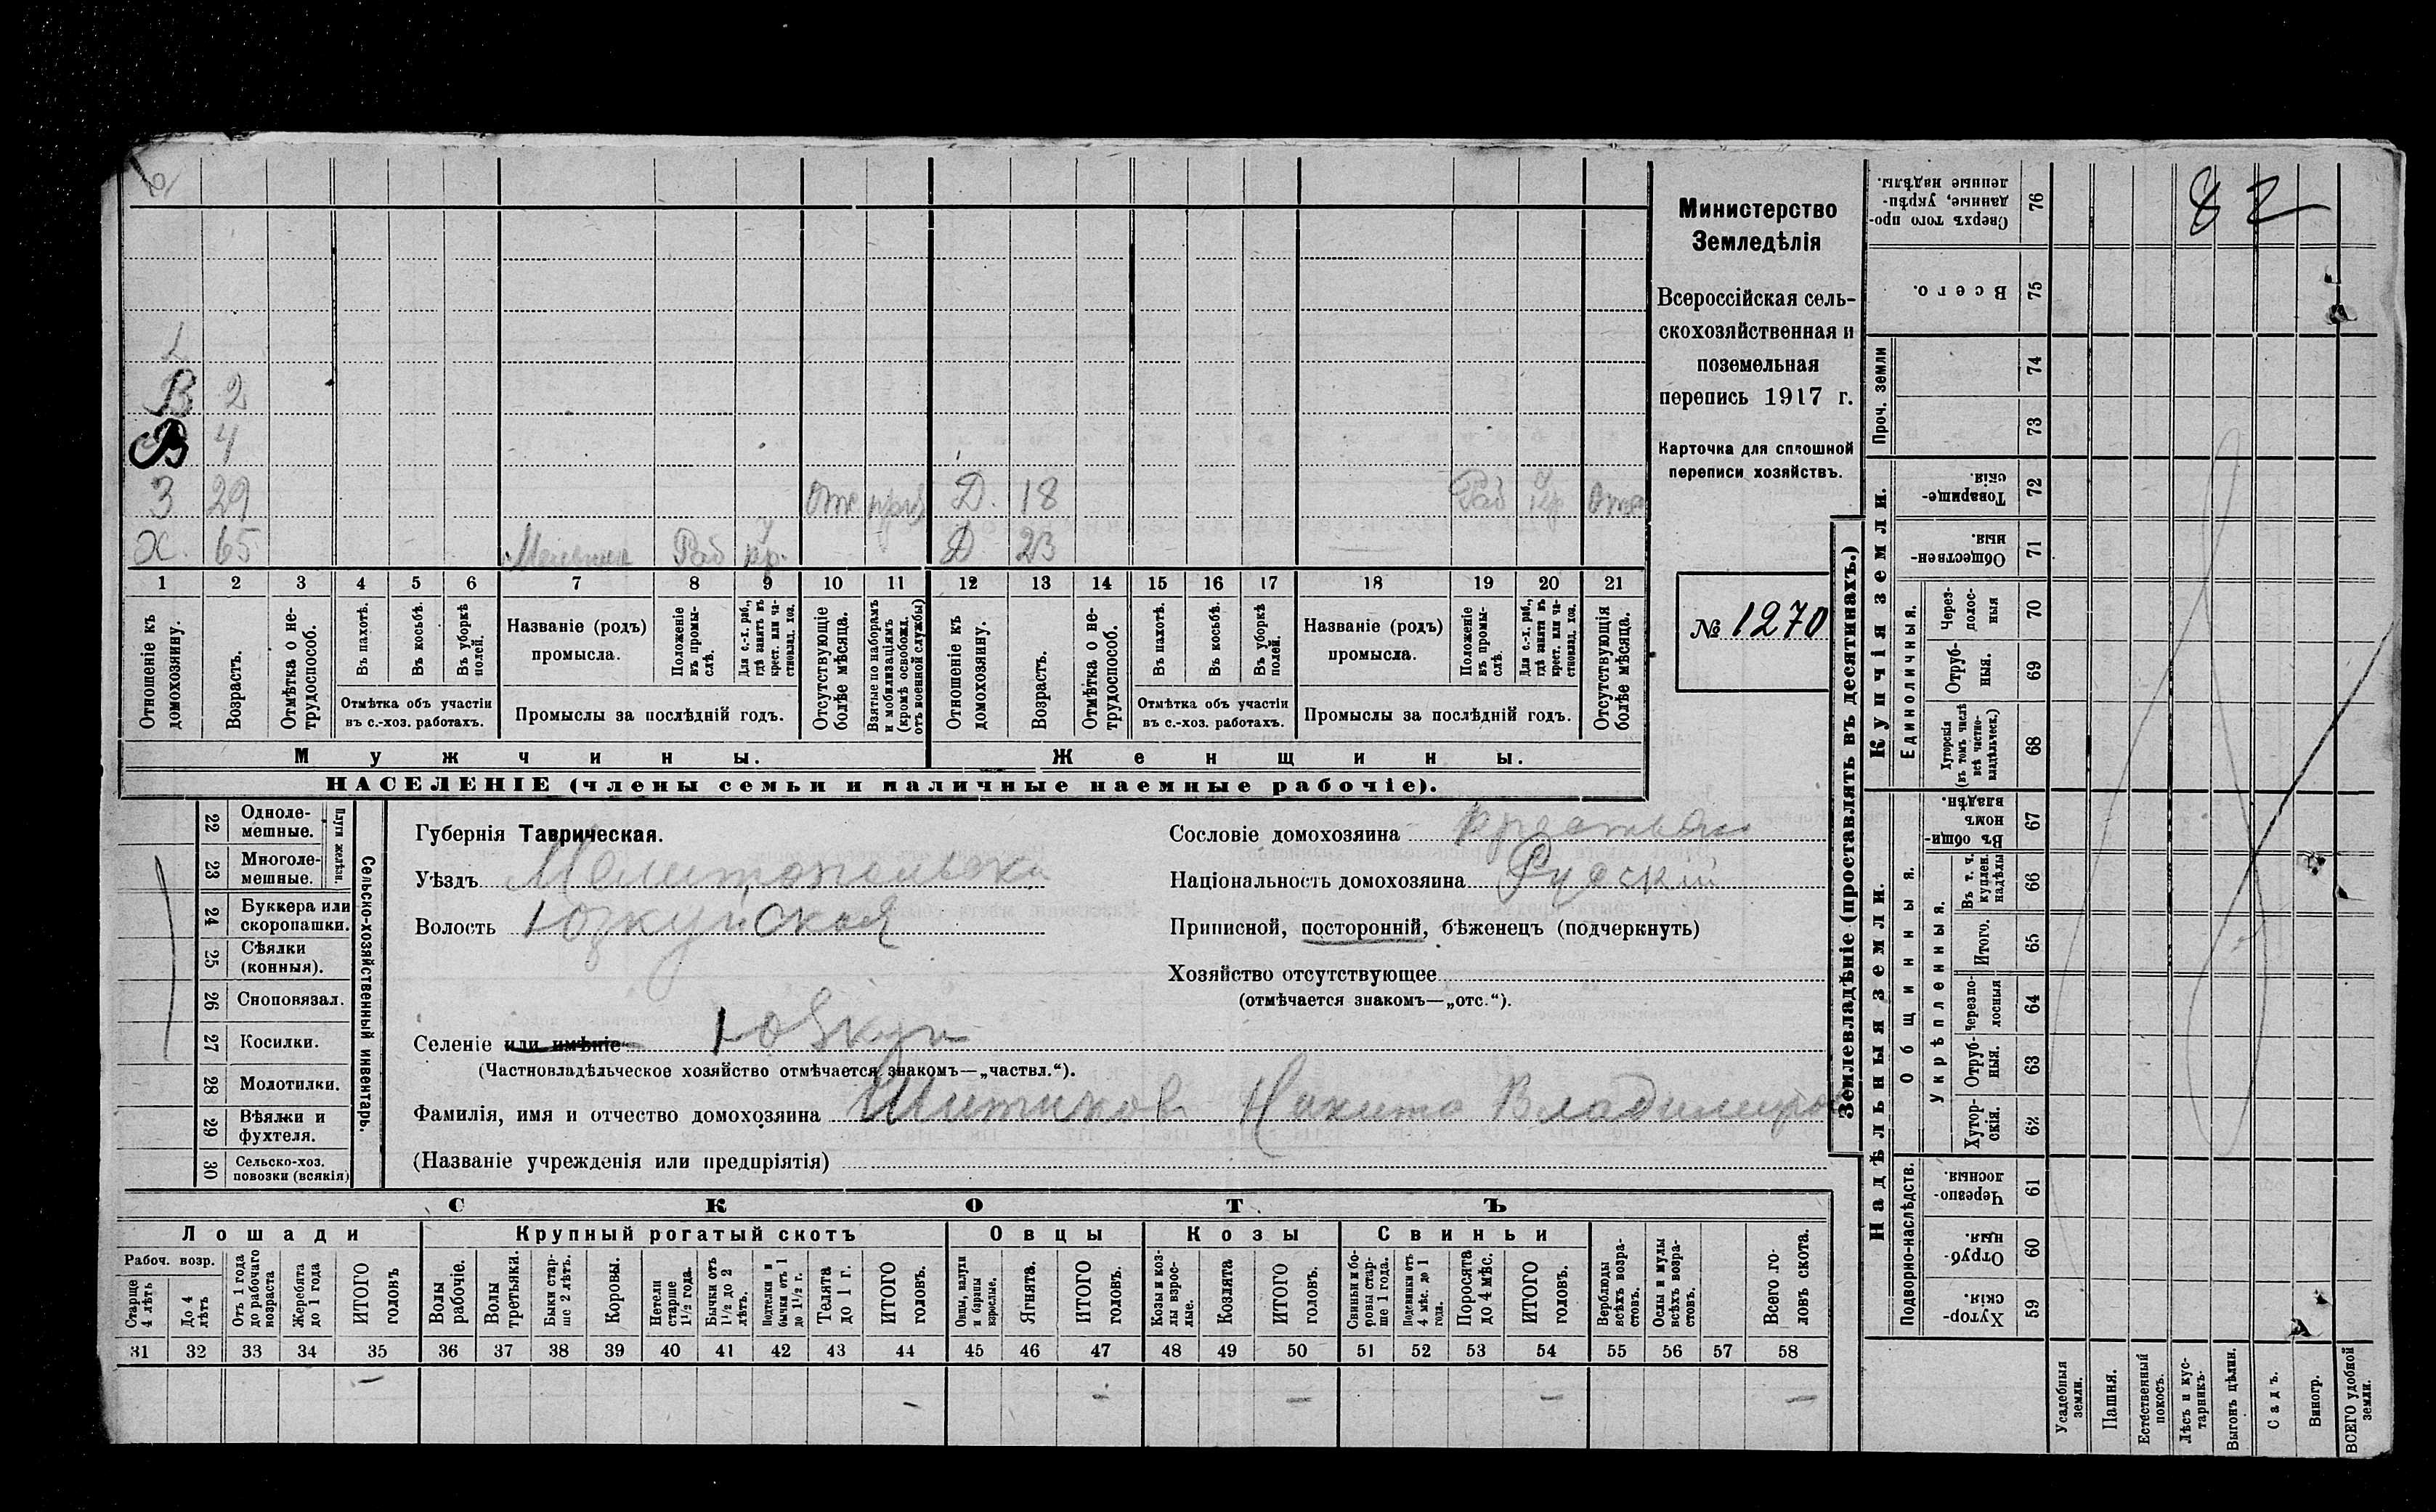 82
Министерство
Земледѣлія
Всероссійская сель-
скохозяйственная и
поземельная
перепись 1917 г.
Карточка для сплошной
переписи хозяйствъ.
№ 1270
В 2
В 4
З 29 Д. 18 Раб
Х. 65 Раб Д 23
1 2 3 4 5 6 7 8 9 10 11 12 13 14 15 16 17 18 19 20 21
Отношеніе къ домохозяину.
Возрастъ.
Отмѣтка о не-
трудоспособ.
Въ пахотѣ.
Въ косьбѣ.
Въ уборкѣ полей.
Отмѣтка объ участіи
въ с.-хоз. работахъ.
Названіе (родъ)
промысла.
Положеніе въ промы-
слѣ.
Для с.-х. раб., гдѣ занятъ въ крест. или ча-
стновлад. хоз.
Промыслы за послѣдній годъ.
Отсутствующіе болѣе мѣсяца.
Взятые по наборамъ и мобилизаціямъ (кромѣ освобожд. отъ военной службы)
Отношеніе къ домохозяину.
Возрастъ.
Отмѣтка о не-
трудоспособ.
Въ пахотѣ.
Въ косьбѣ.
Въ уборкѣ полей.
Отмѣтка объ участіи
въ с.-хоз. работахъ.
Названіе (родъ)
промысла.
Положеніе въ промы-
слѣ.
Для с.-х. раб., гдѣ занята въ крест. или ча-
стновлад. хоз.
Промыслы за послѣдній годъ.
Отсутствующія болѣе мѣсяца.
Мужчины.
Женщины.
НАСЕЛЕНІЕ (члены семьи и наличные наемные рабочіе).
22 Одноле-
мешные.
23 Многоле-
мешные.
Плуги желѣзн.
24 Буккера или
скоропашки.
25 Сѣялки
(конныя).
26 Сноповязал.
27 Косилки.
28 Молотилки.
29 Вѣялки и
фухтеля.
30 Сельско-хоз.
повозки (всякія)
Сельско-хозяйственный инвентарь.
Губернія Таврическая.
Уѣздъ
Волость Юзкуйская
Селеніе или имѣніе Юзкуи
(Частновладѣльческое хозяйство отмѣчается знакомъ—„частвл.“).
Фамилія, имя и отчество домохозяина Шитиков Никита Владимиров
(Названіе учрежденія или предпріятія)
Сословіе домохозяина
Національность домохозяина Рускій
Приписной, посторонній, бѣженецъ (подчеркнуть)
Хозяйство отсутствующее
(отмѣчается знакомъ—„отс.“).
СКОТЪ
Лошади
Крупный рогатый скотъ
Овцы
Козы
Свиньи
Рабоч. возр.
Старше 4 лѣтъ
До 4 лѣтъ
Отъ 1 года до рабочаго возраста
Жеребята до 1 года
ИТОГО головъ
Волы рабочіе.
Волы третьяки.
Быки стар-
ше 2 лѣтъ.
Коровы.
Нетели старше 1½ года.
Бычки отъ 1½ до 2 лѣтъ.
Подтелки и бычки отъ 1 до 1½ г.
Телята до 1 г.
ИТОГО головъ.
Овцы, валухи и бараны взрослые.
Ягнята.
ИТОГО головъ.
Козы и коз-
лы взрос-
лые.
Козлята
ИТОГО головъ.
Свиньи и бо-
ровы стар-
ше 1 года.
Подсвинки отъ 4 мѣс. до 1 года.
Поросята до 4 мѣс.
ИТОГО головъ.
Верблюды всѣхъ возра-
стовъ.
Ослы и мулы всѣхъ возра-
стовъ.
Всего го-
ловъ скота.
31 32 33 34 35 36 37 38 39 40 41 42 43 44 45 46 47 48 49 50 51 52 53 54 55 56 57 58
Землевладѣніе (проставлять въ десятинахъ.)
Купчія земли.
Надѣльныя земли.
Сверхъ того про-
данные, укрѣп-
ленные надѣлы. 76
Всего. 75
Проч. земли
74
73
Товарище-
скія 72
Обществен-
ныя. 71
Единоличныя.
Через-
полос-
ныя 70
Отруб-
ныя. 69
Хуторскія (въ томъ числѣ всѣ частно-
владѣльческ.) 68
Общинныя.
Въ общи-
номъ
владѣн. 67
Укрѣпленныя.
Въ т. ч. куплен. надѣлы 66
Итого. 65
Черезпо-
лосныя 64
Отруб-
ныя. 63
Хутор-
скія. 62
Подворно-наслѣдств.
Черезпо-
лосныя. 61
Отруб-
ныя. 60
Хутор-
скія. 59
Усадебныя земли.
Пашня.
Естественный покосъ.
Лѣсъ и кус-
тарникъ.
Выгонъ цѣлин.
Садъ.
Виногр.
ВСЕГО удобной земли.